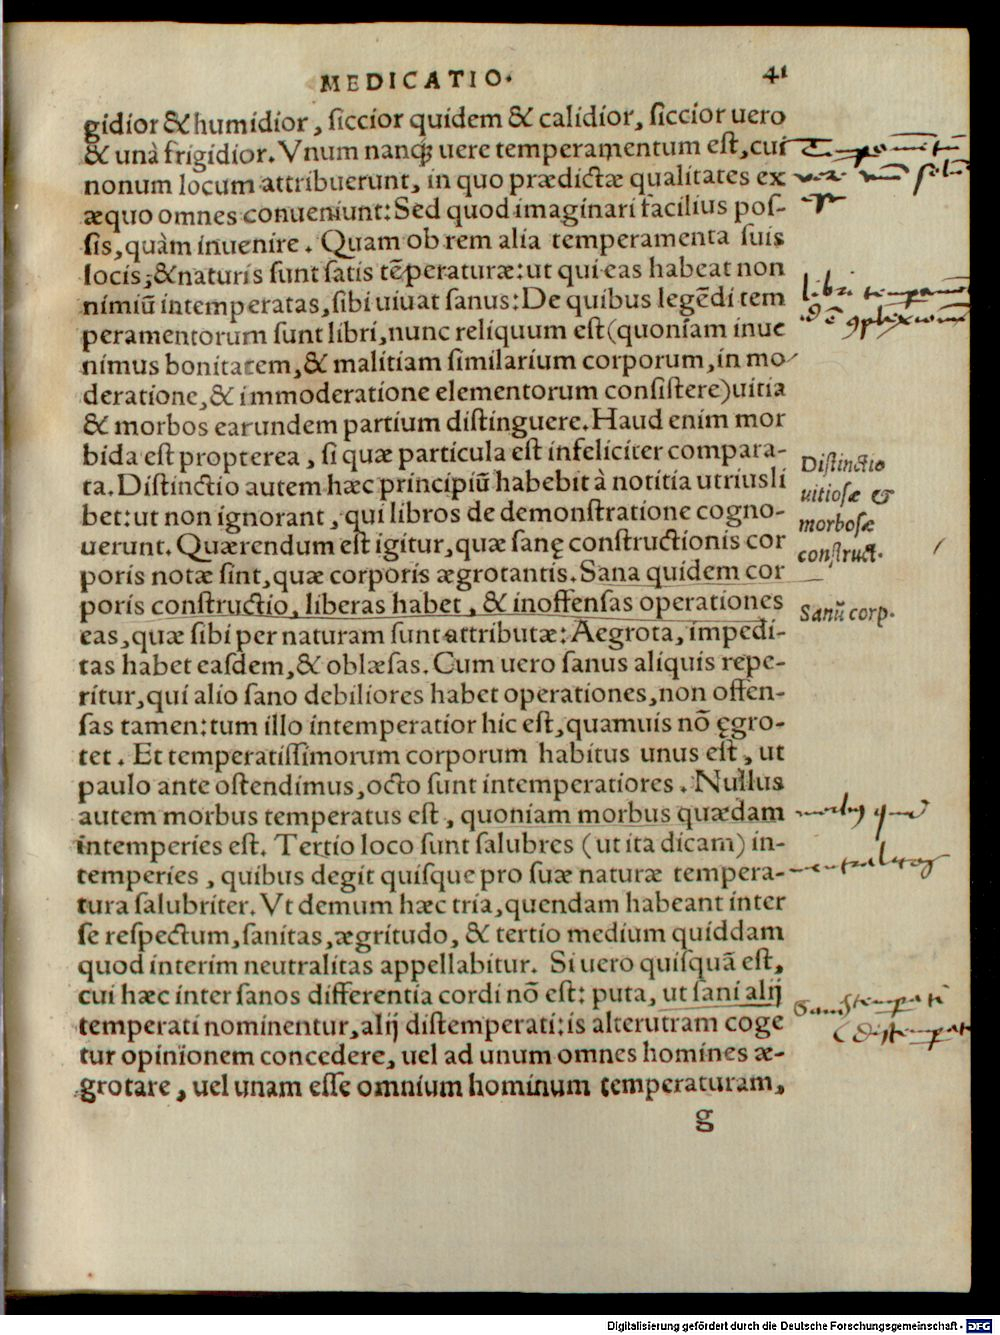 MEDICATIO.
41
gidior & humidior, ſiccior quidem & calidior, ſiccior uero
& unà frigidior. Vnum nanq; uere temperamentum eſt, cui
nonum locum attribuerunt, in quo prædictæ qualitates ex
æquo omnes conueniunt: Sed quod imaginari facilius poſ-
ſis, quàm inuenire. Quam ob rem alia temperamenta ſuis
locis, & naturis ſunt ſatis tēperaturæ: ut qui eas habeat non
nimiū intemperatas, ſibi uiuat ſanus: De quibus legēdi tem
peramentorum ſunt libri, nunc reliquum eſt (quoniam inue
nimus bonitatem, & malitiam ſimilarium corporum, in mo
deratione, & immoderatione elementorum conſiſtere) uitia
& morbos earundem partium diſtinguere. Haud enim mor
bida eſt propterea, ſi quæ particula eſt infeliciter compara-
ta. Diſtinctio autem hæc principiū habebit à notitia utriusli
bet: ut non ignorant, qui libros de demonſtratione cogno-
uerunt. Quærendum eſt igitur, quæ ſanę conſtructionis cor
poris notæ ſint, quæ corporis ægrotantis. Sana quidem cor
poris conſtructio, liberas habet, & inoffenſas operationes
eas, quæ ſibi per naturam ſunt attributæ: Aegrota, impedi-
tas habet eaſdem, & oblæſas. Cum uero ſanus aliquis repe-
ritur, qui alio ſano debiliores habet operationes, non offen-
ſas tamen: tum illo intemperatior hic eſt, quamuis nō ęgro-
tet. Et temperatiſſimorum corporum habitus unus eſt, ut
paulo ante oſtendimus, octo ſunt intemperatiores. Nullus
autem morbus temperatus eſt, quoniam morbus quædam
intemperies eſt. Tertio loco ſunt ſalubres (ut ita dicam) in-
temperies, quibus degit quiſque pro ſuæ naturæ tempera-
tura ſalubriter. Vt demum hæc tria, quendam habeant inter
ſe reſpectum, ſanitas, ægritudo, & tertio medium quiddam
quod interim neutralitas appellabitur. Si uero quiſquā eſt,
cui hæc inter ſanos differentia cordi nō eſt: puta, ut ſani alij
temperati nominentur, alij diſtemperati: is alterutram coge
tur opinionem concedere, uel ad unum omnes homines æ-
grotare, uel unam eſſe omnium hominum temperaturam,
g
Diſtinctio
uitioſæ &
morboſæ
conſtruct.
Sanū corp.
neutralitas
Digitalisierung gefördert durch die Deutsche Forschungsgemeinschaft - DFG